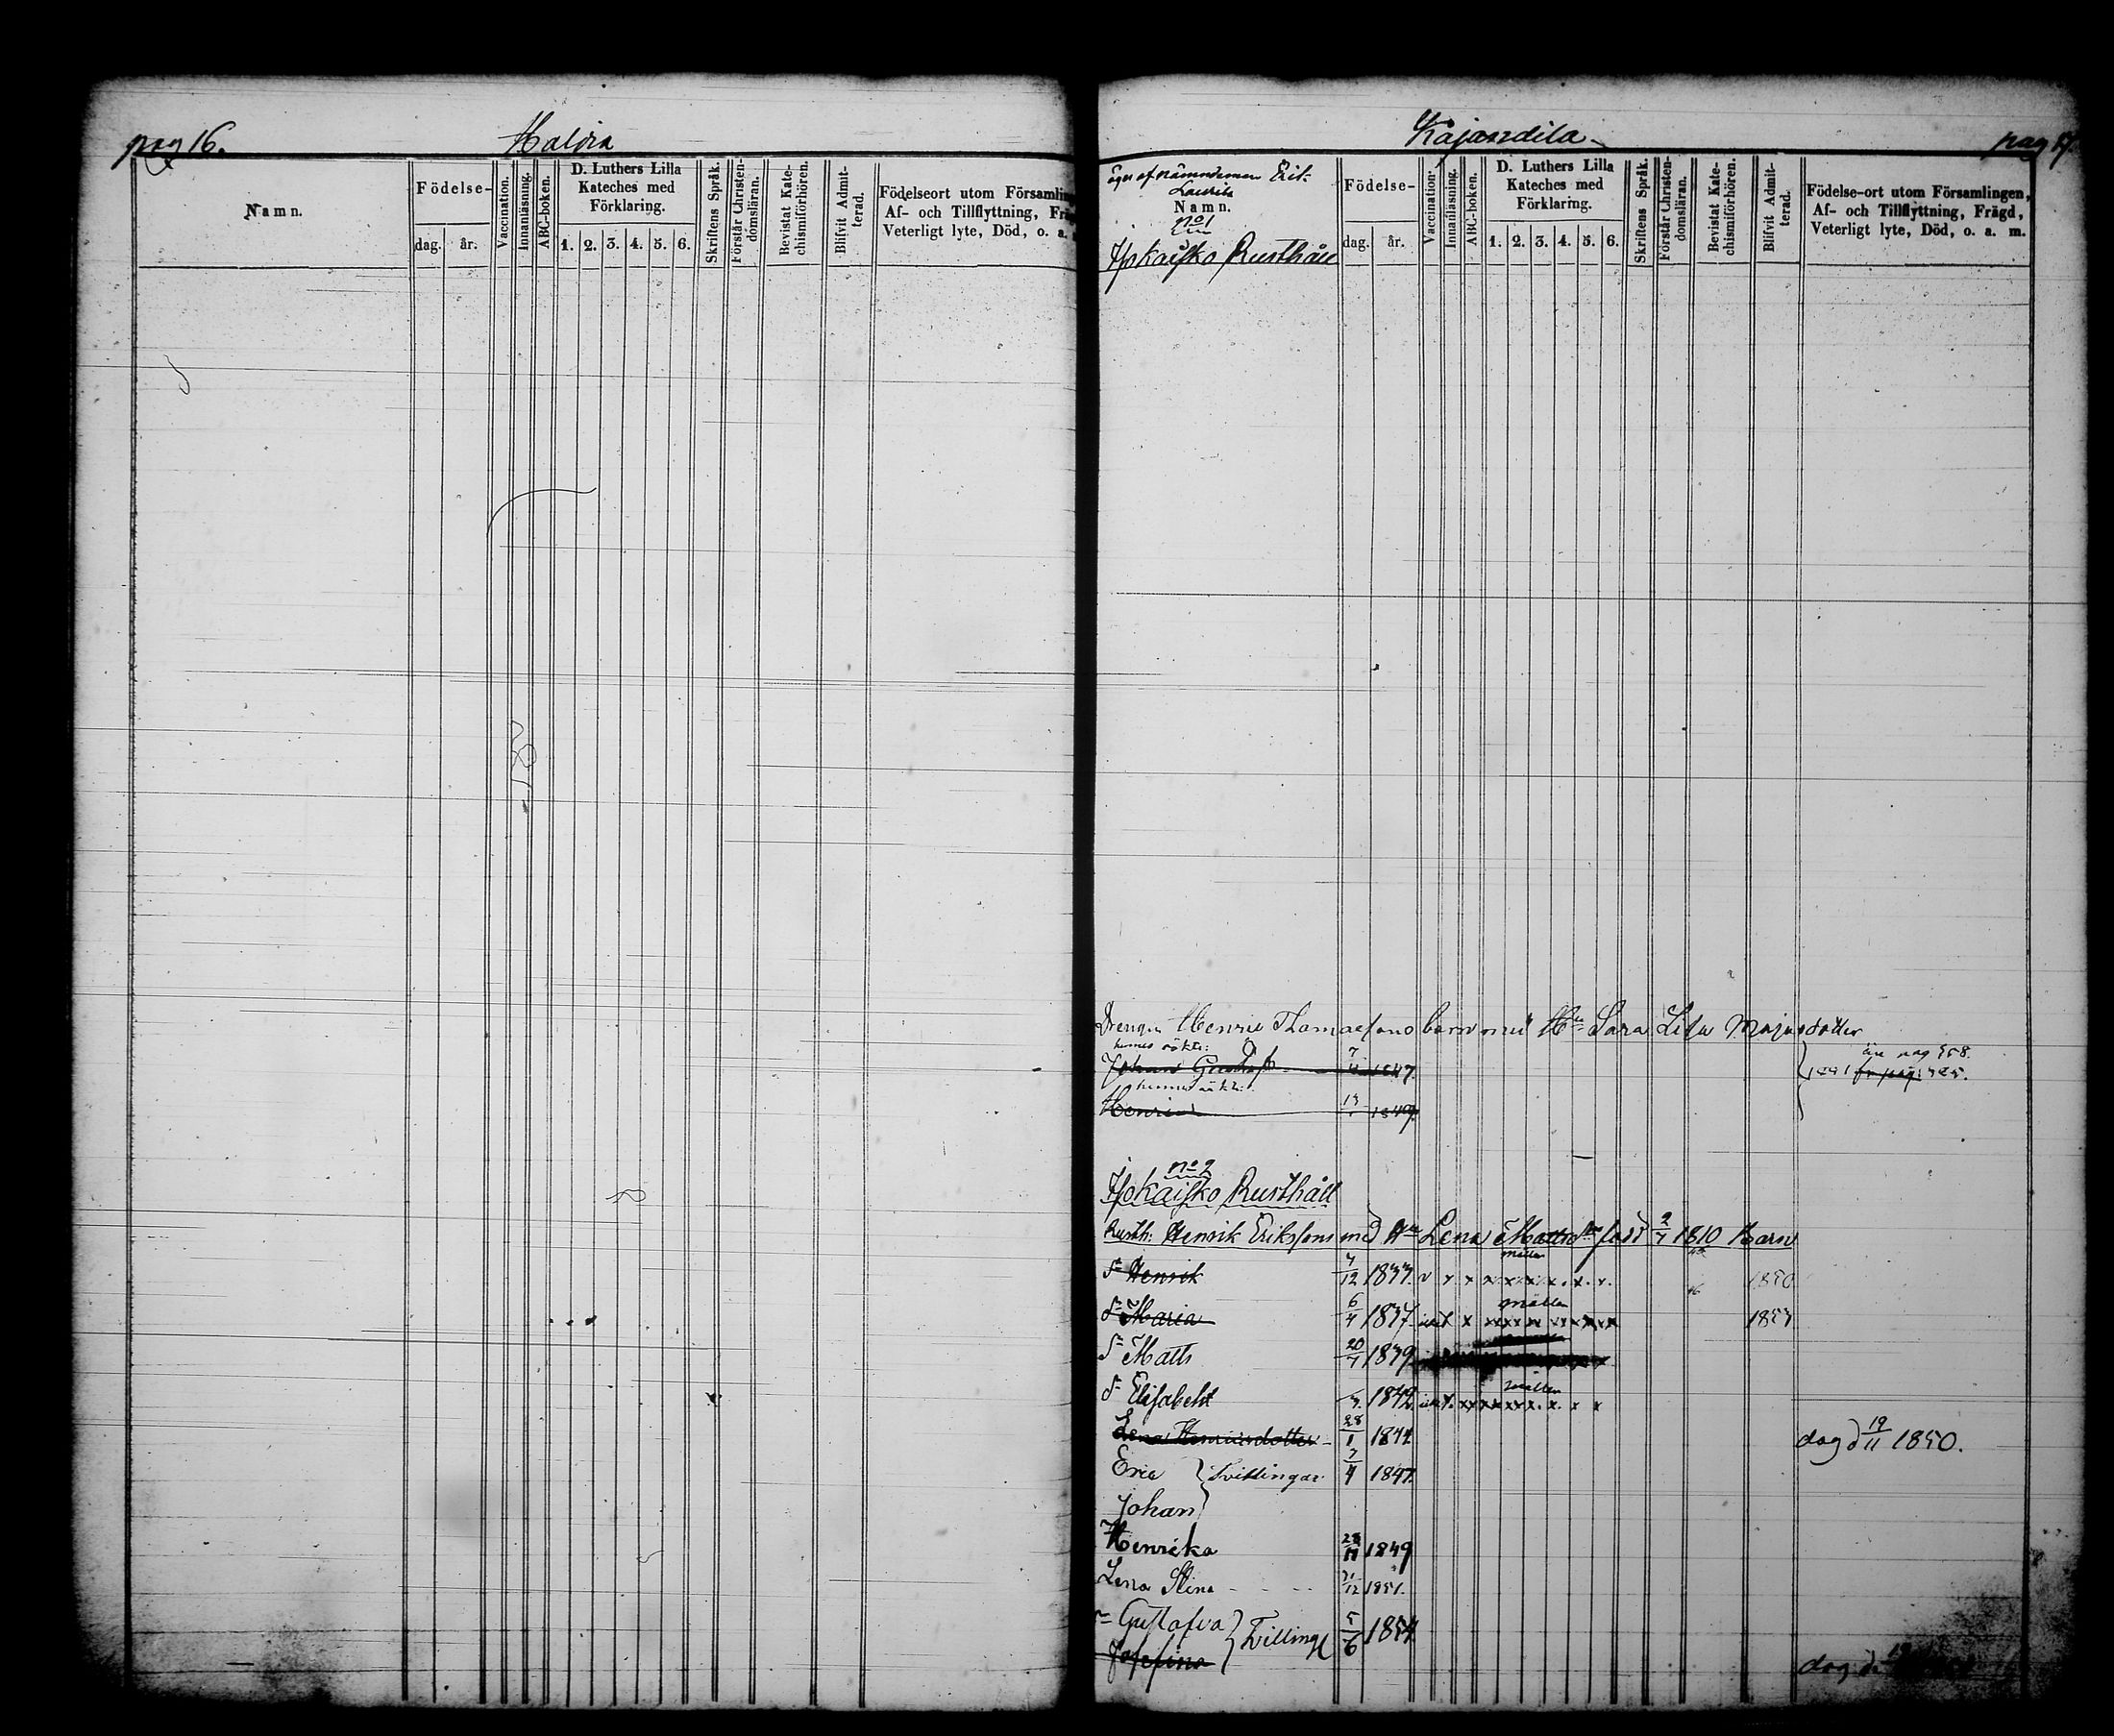 pag 16. Haloja
Namn. Födelse- dag. år. Vaccination. Innanläsning. ABC-boken. D. Luthers Lilla Kateches med Förklaring. 1. 2. 3. 4. 5. 6. Skriftens Språk. Förstår Christen-domsläran. Bevistat Kate-chismiförhören. Blifvit Admit-terad. Födelseort utom Församling Af- och Tillflyttning, Frä Veterligt lyte, Död, o. a.
Kajandila pag 17
äges af nämndeman Erik
Laurila
Namn. Födelse- dag. år. Vaccination. Innanläsning. ABC-boken. D. Luthers Lilla Kateches med Förklaring. 1. 2. 3. 4. 5. 6. Skriftens Språk. Förstår Christen-domsläran. Bevistat Kate-chismiförhören. Blifvit Admit-terad. Födelse-ort utom Församlingen, Af- och Tillflyttning, Frägd, Veterligt lyte, Död, o. a. m.
No 1
Isokaisko Rusthåll
Drengen Henric Thomaessons barn med Hu Sara Lisa Majasdotter
hennes oäkta:
Johan Gustaf 1847.
hennes oäkt:
1849.
No 2
Isokaisko Rusthåll
Rusth: Henrik Erikssons med Hu Lena Mattsdr född 1810 Barn
Sn Henrik 12 1833. v x x x x x x. x. x. 1850
mellan
dr Maria 6/4 1837. x 1853
Sn Matts 20 1839
mellan
dr Elisabeht 1842
Lena Henricsdotter 28/1 1844 dog d 19/11 1850.
Eric } Tvillingar 7/4 1847.
Johan
Henrika 1849
Lena Stina - - - 12 1851.
Gustafva } Tvilling 5/6 1854
Josefina dog d.